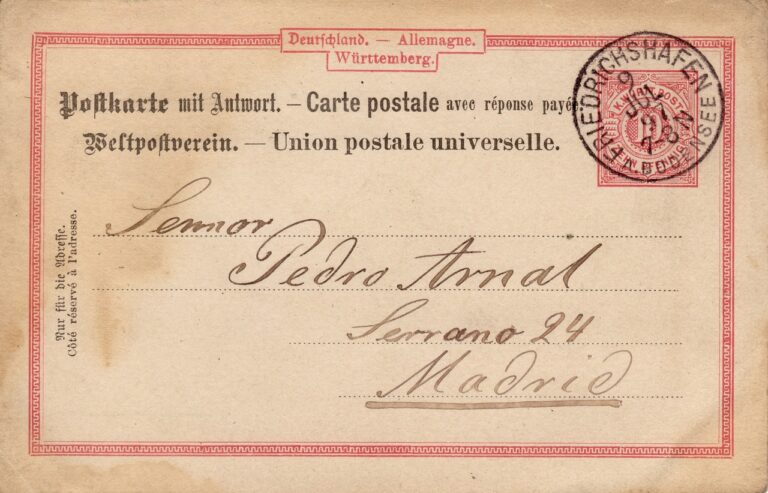 Deutschland. — Allemagne.
Württemberg.
Postkarte mit Antwort. — Carte postale avec réponse payée.
Weltpostverein. — Union postale universelle.
FRIEDRICHSHAFEN
A. BODENSEE
Nur für die Adresse.
Côté réservé à l'adresse.
Sennor
Pedro Arnal
Serrano 24
Madrid